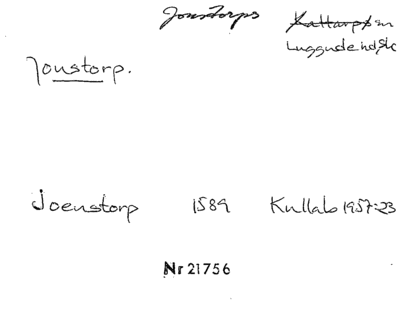 Jonstorps Kattarps sn
Luggude hd, Sk
Jonstorp.
Joenstorp 1589 Kullab 1957:23
Nr 21756